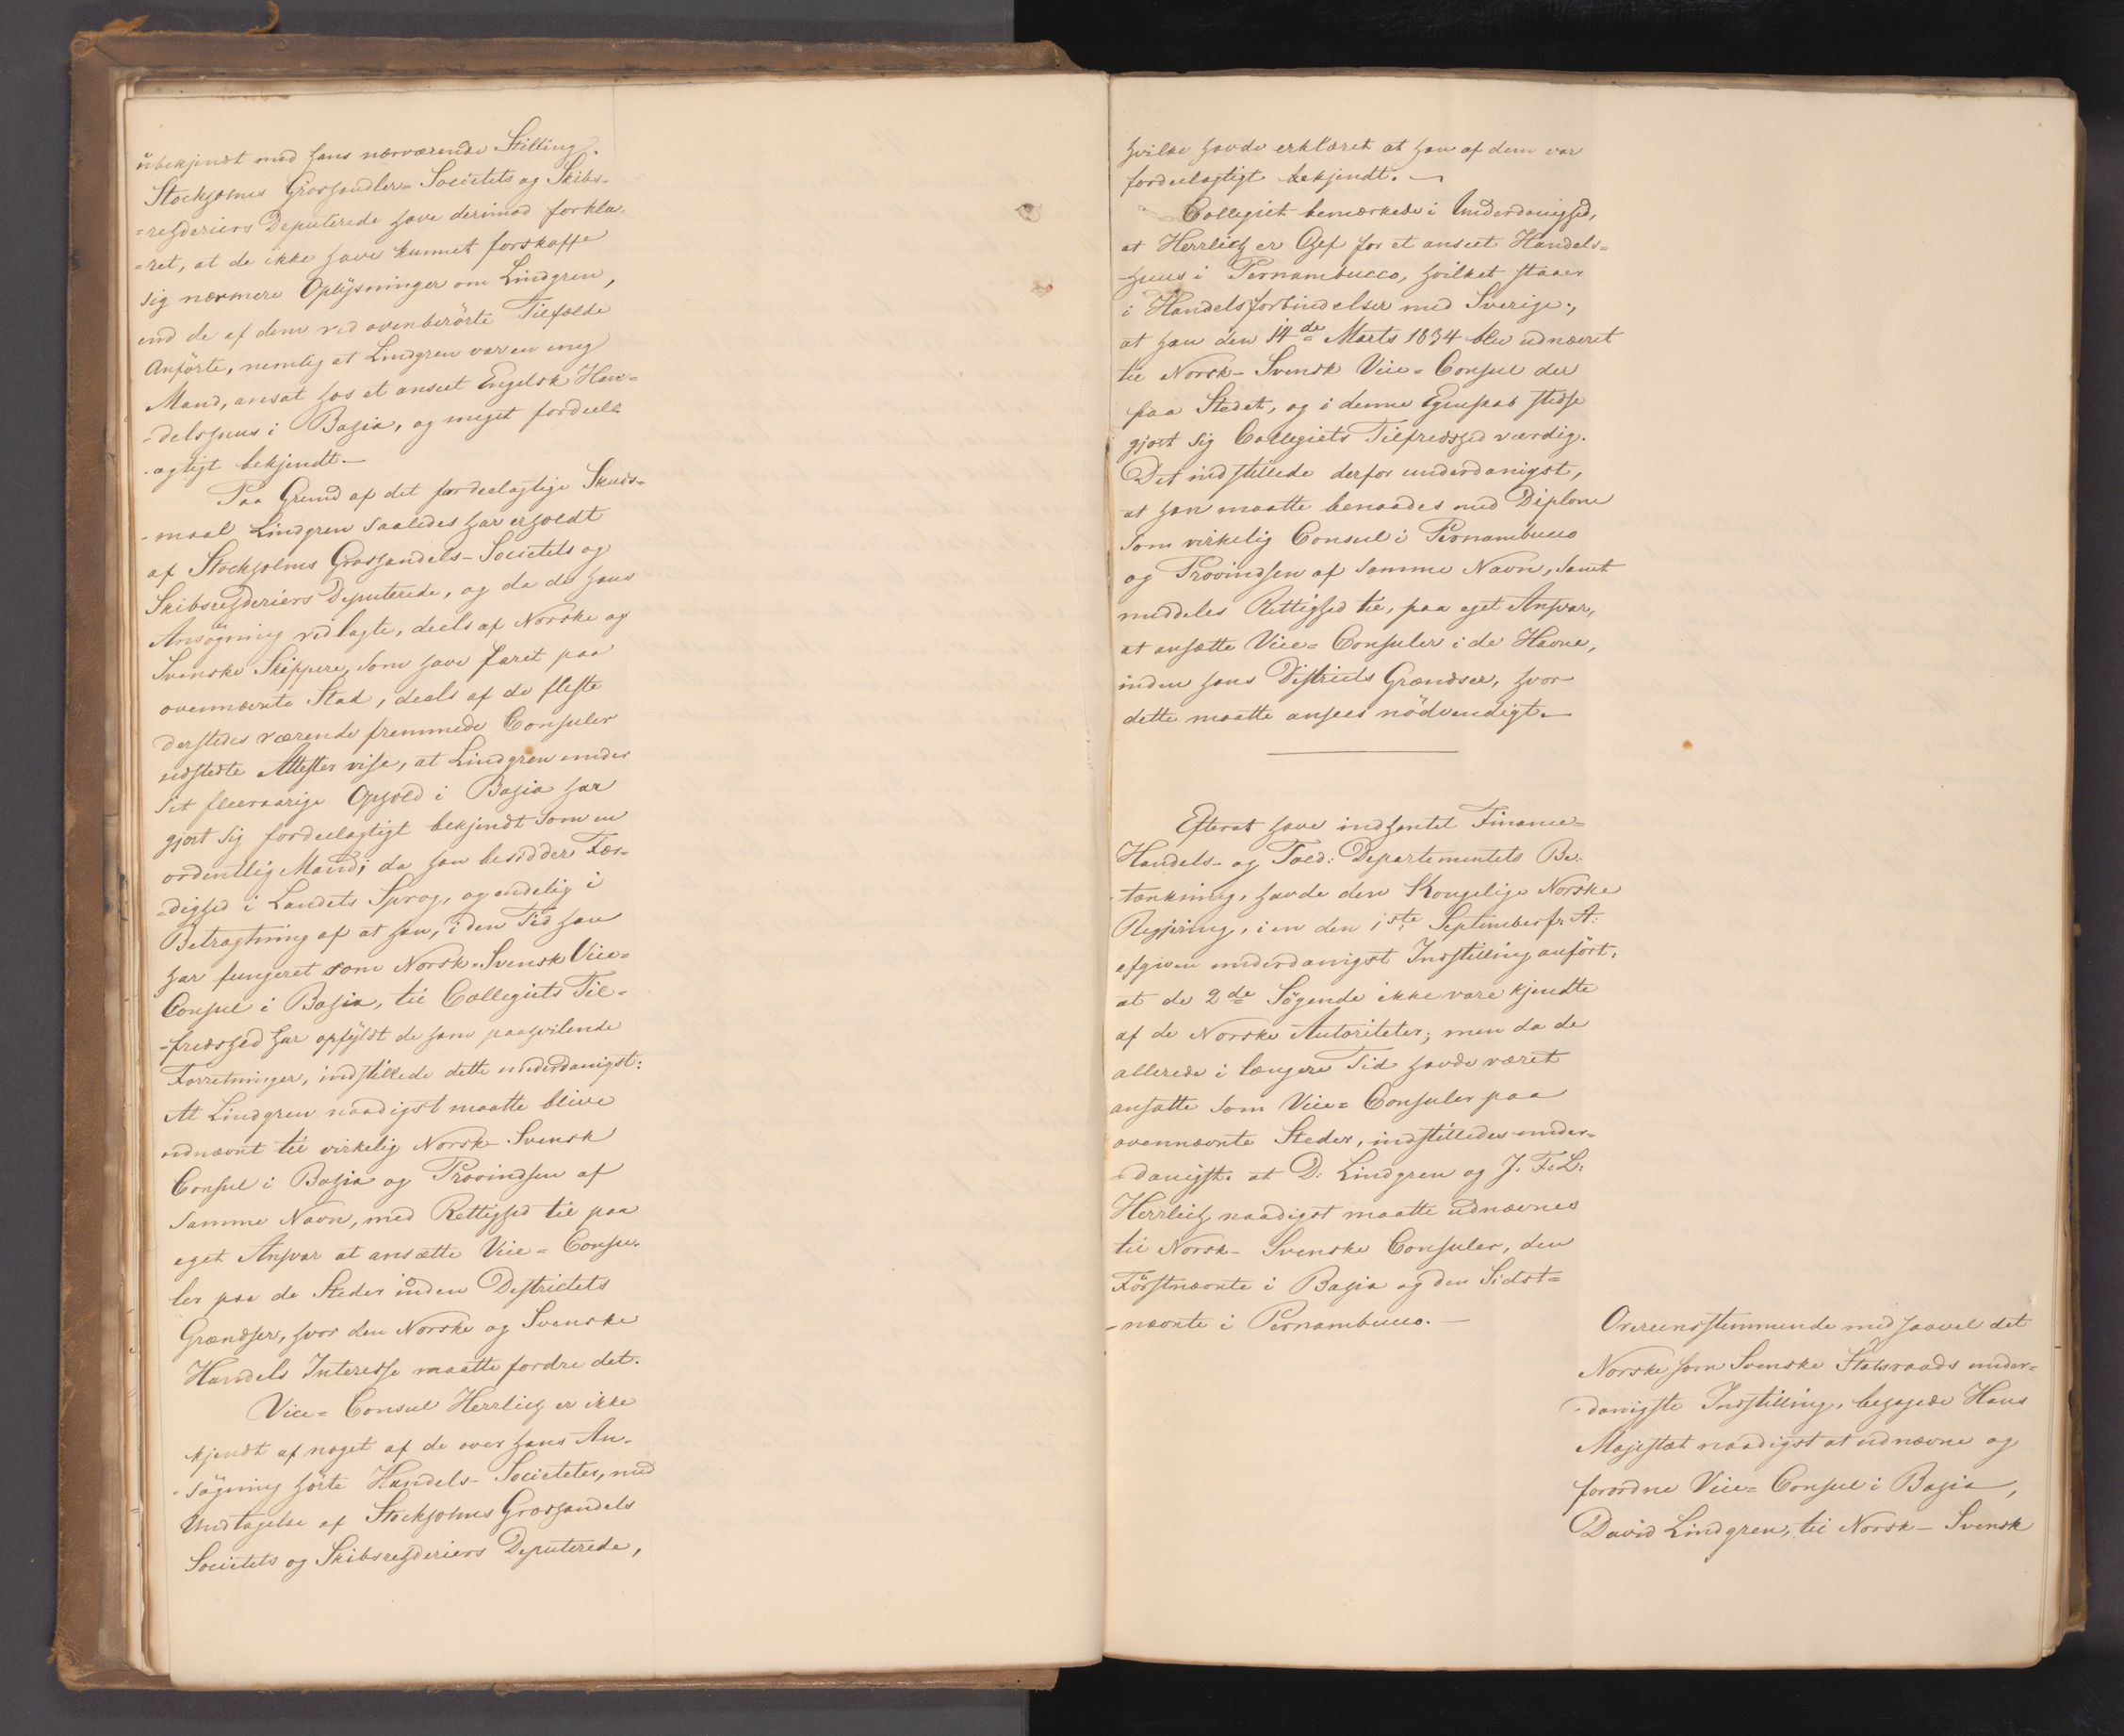 ubekjendt med hans nærværende Stilling.
Stockholms Groshandler= Societets og Skibs-
=rehderiers Deputerede have derimod forkla-
=ret, at de ikke have kunnet forskaffe
sig nærmere Oplysninger om Lindgren,
end de af dem ved ovenberörte Tilfælde
Anförte, nemlig at Lindgren var en ung
Mand, ansat hos et anseet Engelsk Han=
=delshuus i Bahia, og meget fordeel=
-agtigt bekjendt.—
Paa Grund af det fordeelagtige Skuds-
-maal Lindgren saaledes har erholdt
af Stockholms Groshandels- Societets og
Skibsrehderiers Deputerede, og da de hans
Ansögning vedlagte, deels af Norske og
Svenske Skippere, som have faret paa
ovennævnte Stad, deels af de fleste
dersteds værende fremmede Consuler
udstedte Attester vise, at Lindgren under
sit fleeraarige Ophold i Bahia har
gjort sig fordeelagtigt bekjendt som en
ordentlig Mand; da han besidder Fær-
=dighed i Landets Sprog, og endelig i
Betragtning af at han, i den Tid han
har fungeret som Norsk-Svensk Vice=
Consul i Bahia, til Collegiets Til-
-fredshed har opfyldt de ham paahvilende
Forretninger, indstillede dette underdanigst:
At Lindgren naadigst maatte blive
udnævnt til virkelig Norsk- Svensk
Consul i Bahia og Provindsen af
samme Navn, med Rettighed til paa
eget Ansvar at ansætte Vice= Consu-
ler paa de Steder inden Districtets
Grændser, hvor den Norske og Svenske
Handels Interesse maatte fordre det.
Vice= Consul Herrlich er ikke
kjendt af noget af de over hans An-
-sögning hörte Handels- Societeter, med
Undtagelse af Stockholms Groshandels
Societets og Skibsrehderiers Deputerede,
hvilke havde erklæret at han af dem var
fordeelagtigt bekjendt.—
Collegiet bemærkede i Underdanighed,
at Herrlich er Chef for et anseet Handels=
-huus i Pernambucco, hvilket staaer
i Handelsforbindelser med Sverige;
at han den 14de Marts 1834 blev udnævnt
til Norsk- Svensk Vice= Consul der
paa Stedet, og i denne Egenskab stedse
gjort sig Collegiets Tilfredshed værdig.
Det indstillede derfor underdanigst,
at han maatte benaades med Diplom
som virkelig Consul i Pernambuco
og Provindsen af samme Navn, samt
meddeles Rettighed til, paa eget Ansvar,
at ansætte Vice= Consuler i de Havne,
inden hans Districts Grændser, hvor
dette maatte ansees nödvendigt.—
Efterat have indhentet Finance=
Handels- og Told: Departementets Be-
-tænkning, havde den Kongelige Norske
Regjering, i en den 1ste September fr. A:
afgiven underdanigst Indstilling anfört,
at de 2de Sögende ikke vare kjendte
af de Norske Autoriteter; men da de
allerede i længere Tid havde været
ansatte som Vice= Consuler paa
ovennævnte Steder, indstilledes under=
=danigst. at D: Lindgren og J. F. L:
Herrlich naadigst maatte udnævnes
til Norsk- Svenske Consuler, den
Förstnævnte i Bahia og den Sidst=
-nævnte i Pernambuco.—
Overeensstemmende med saavel det
Norske som Svenske Statsraads under=
-danigste Indstilling, behagede Hans
Majestæt naadigst at udnævne og
forordne Vice= Consul i Bahia,
David Lindgren, til Norsk- Svensk